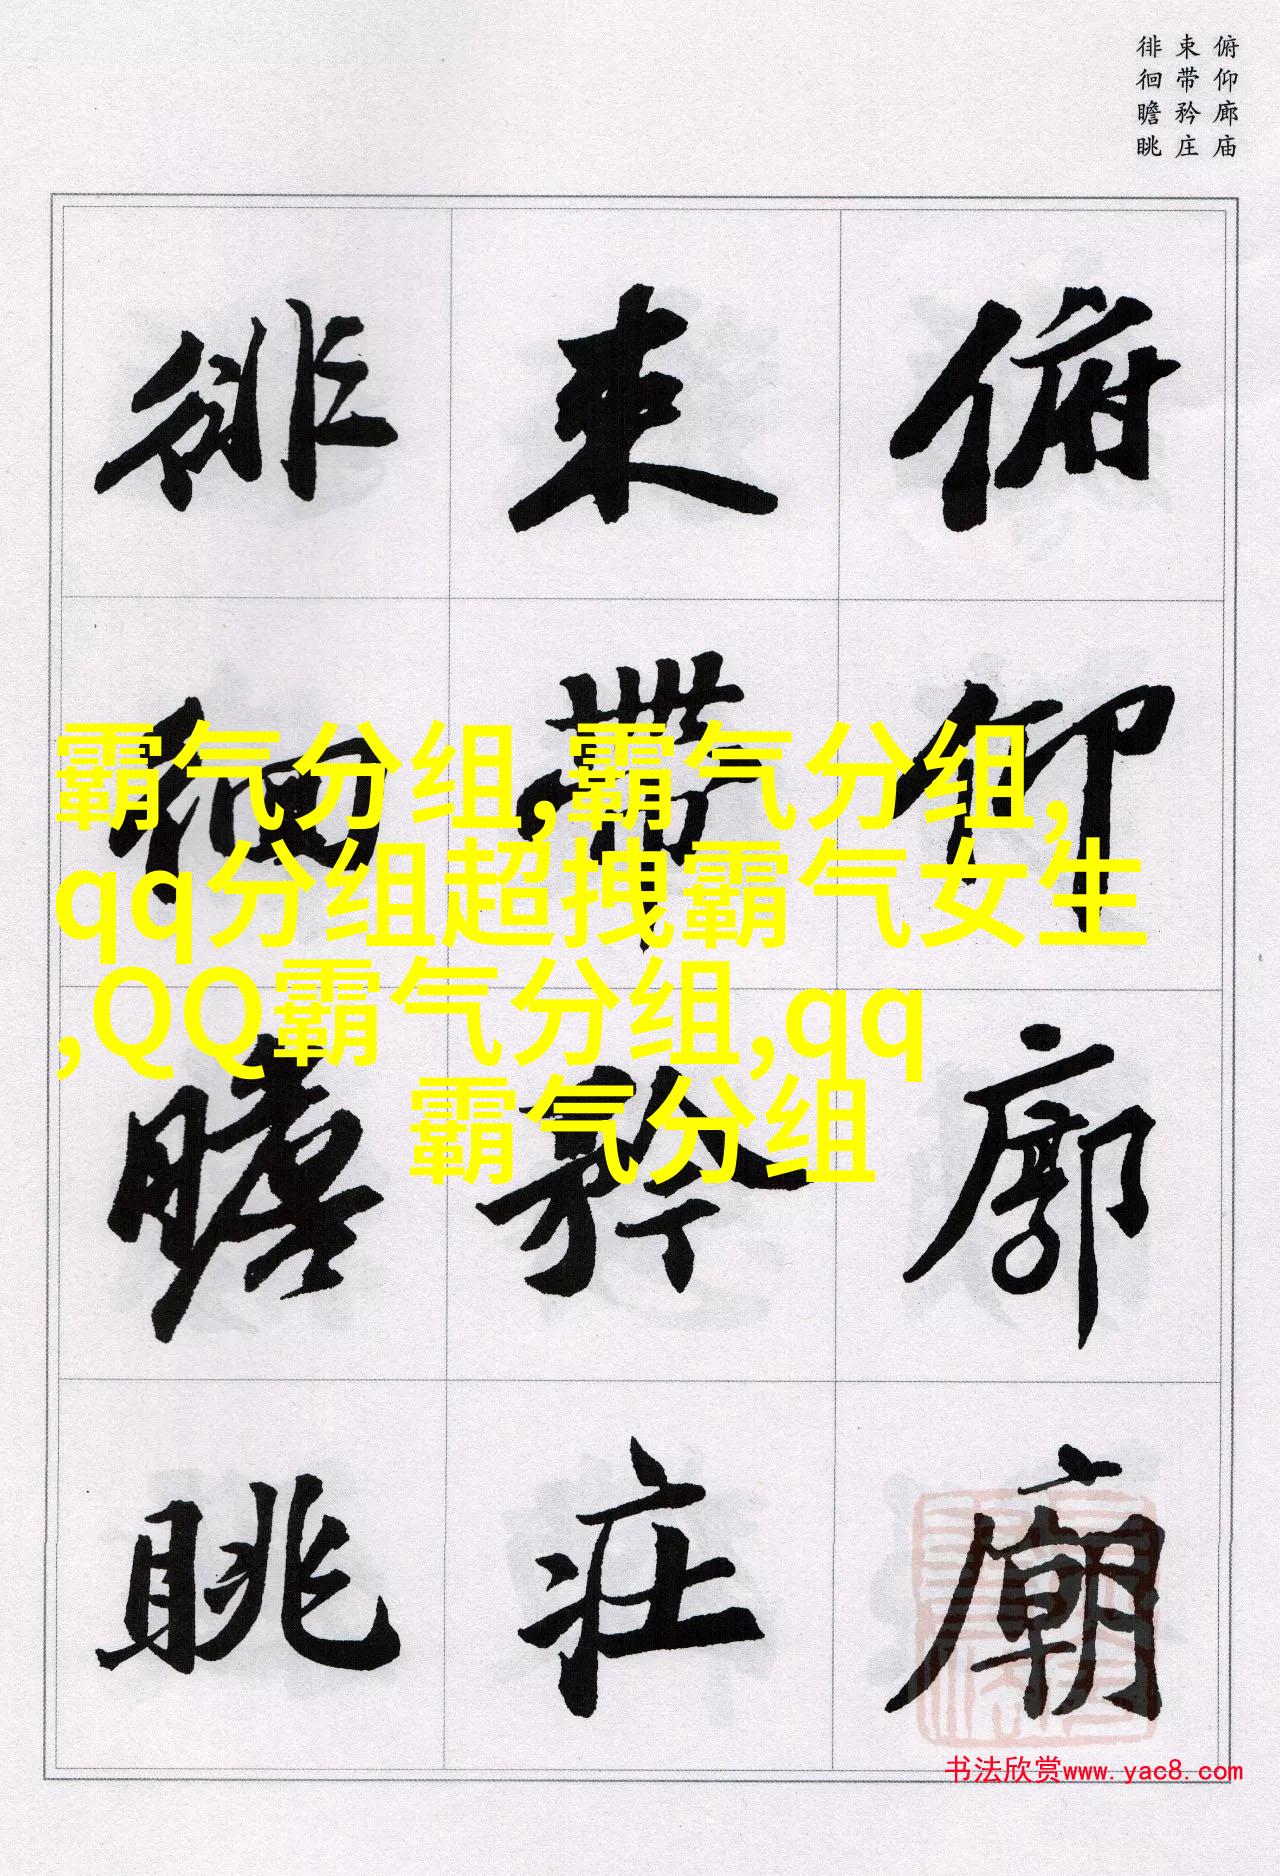 俯仰廊庙
束带矜庄
徘徊瞻眺
俯仰廊廟
束帶矜莊
徘徊瞻眺
霸气分组,霸气分组,
qq分组超拽霸气女生
,QQ霸气分组,qq
霸气分组
书法欣赏www.yac8.com